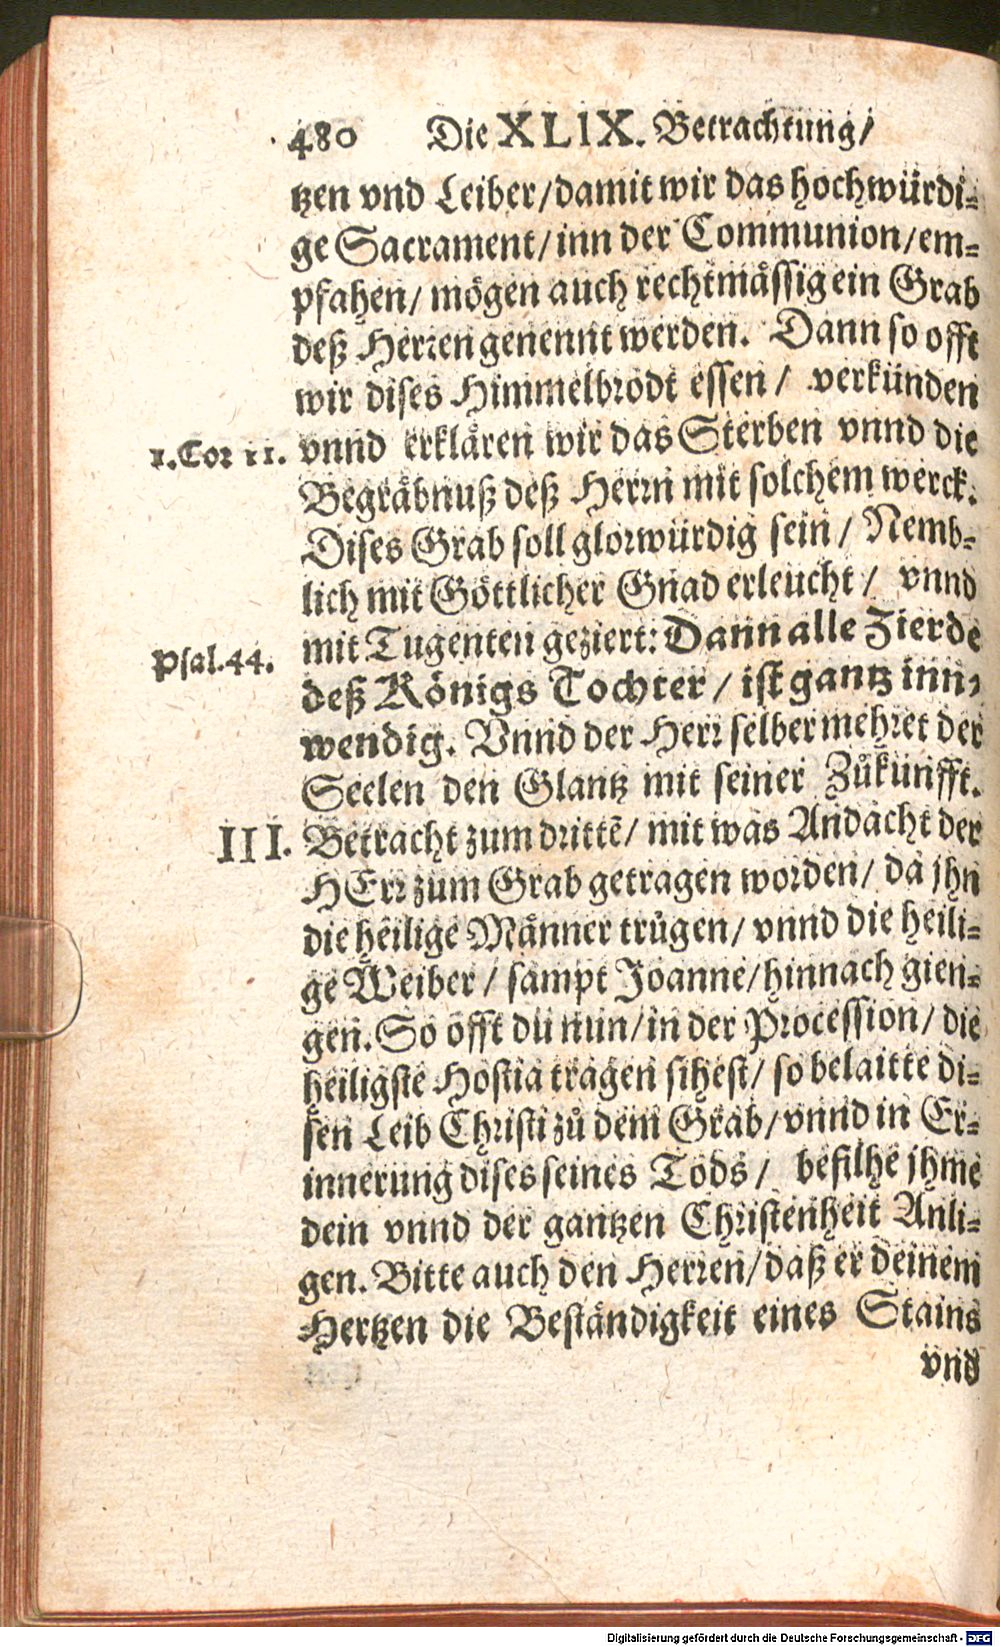 480 Die XLIX. Betrachtung/
tzen vnd Leiber/damit wir das hochwürdi-
ge Sacrament/inn der Communion/em-
pfahen/ mögen auch rechtmässig ein Grab
deß Herren genennt werden. Dann so offt
wir dises Himmelbrodt essen / verkünden
1.Cor 11. vnnd erklåren wir das Sterben vnnd die
Begråbnuß deß Herrn mit solchem werck.
Dises Grab soll glorwürdig sein / Nemb-
lich mit Göttlicher Gnad erleucht / vnnd
Psal.44. mit Tugenten geziert: Dann alle Zierde
deß Königs Tochter / ist gantz inn-
wendig. Vnnd der Herr selber mehret der
Seelen den Glantz mit seiner Zůkunfft.
III. Betracht zum drittẽ/ mit was Andacht der
HErr zum Grab getragen worden/ da jhn
die heilige Männer trůgen/ vnnd die heili-
ge Weiber / sampt Joanne/hinnach gien-
gen. So offt du nun/in der Procession/ die
heiligste Hostia tragen sihest/ so belaitte di-
sen Leib Christi zů dem Grab/vnnd in Er-
innerung dises seines Tods / befilhe jhme
dein vnnd der gantzen Christenheit Anli-
gen. Bitte auch den Herren/daß er deinem
Hertzen die Beständigkeit eines Stains
vnd
Digitalisierung gefördert durch die Deutsche Forschungsgemeinschaft - DFG